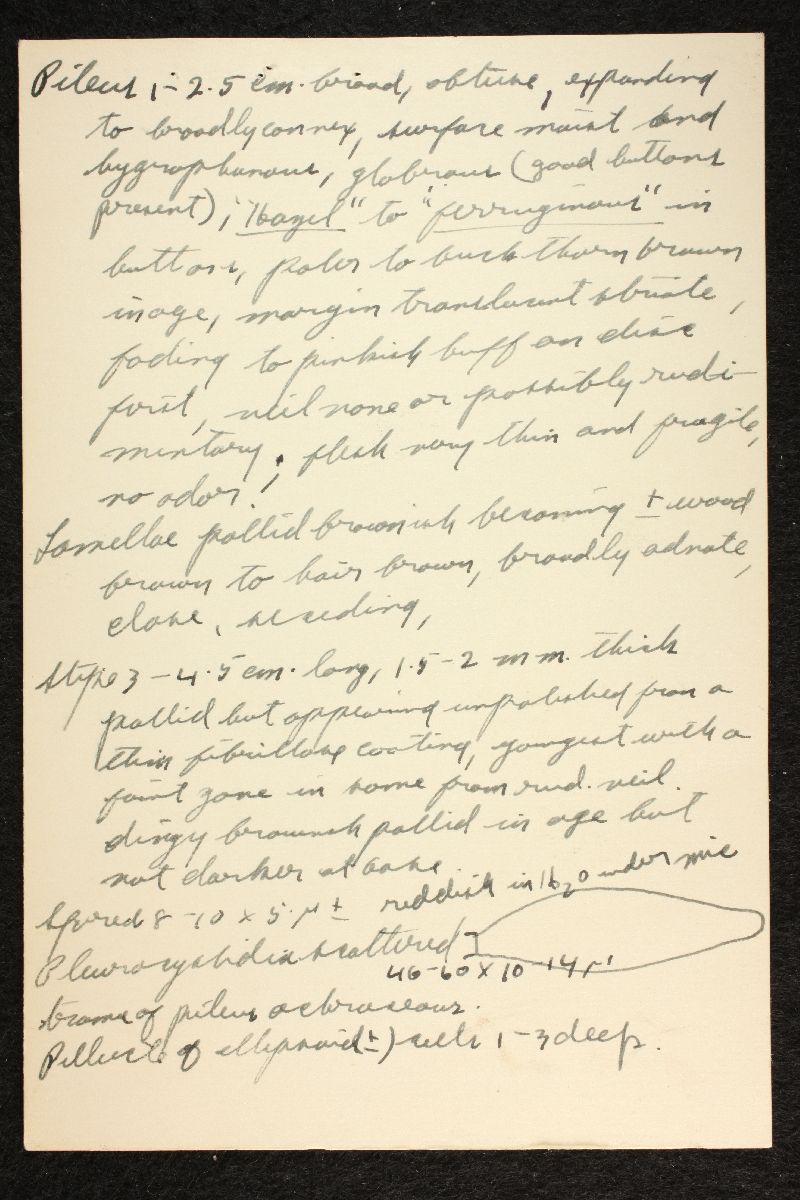 Pileus 1-2.5 cm. broad, obtuse, expanding
to broadly convex, surface moist and
hygrophanous, glabrous (good buttons
present), "Hazel" to "ferruginous" in
buttons, paler to buckthorn brown
in age, margin translucent striate,
fading to pinkish buff on disc
first, veil none or possibly rudi-
mentary; flesh very thin and fragile,
no odor.
Lamellae pallid brownish becoming ± wood
brown to hair brown, broadly adnate,
close, seceding,
Stipe 3-4.5 cm. long, 1.5-2 mm. thick
pallid but appearing unpolished from a
thin fibrillose coating, youngest with a
faint zone in some from rud. veil.
dingy brownish pallid in age but
not darker at base.
Spores 8-10 x 5 μ ± reddish in H2O under mic
Pleurocystidia scattered
46-60 x 10-14 μ
trama of pileus ochraceous.
Pellicle of ellipsoid (±) cells 1-3 deep.